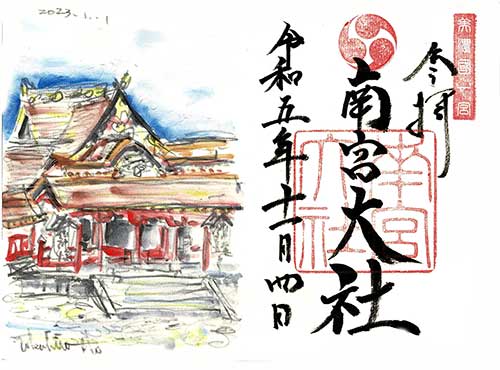 美濃國一宮
奉拝
南宮大社
南宮
大社
令和五年十一月四日